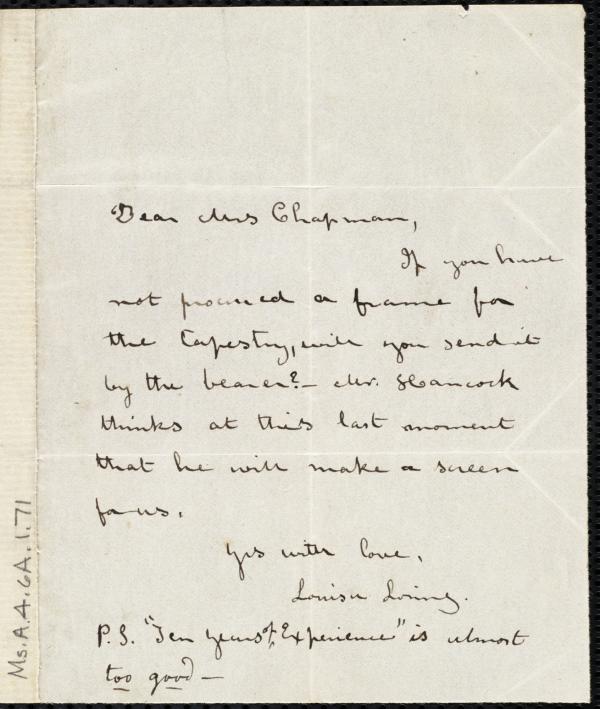 Dear Mrs Chapman,
If you have
not procured a frame for
the tapestry, will you send it
by the bearer? – Mr. Hancock
thinks at this last moment
that he will make a screen
for us.
Yrs with love,
Louisa Loring.
P.S. "Ten years of Experience" is almost
too good –
Ms.A.4.6A.1.71